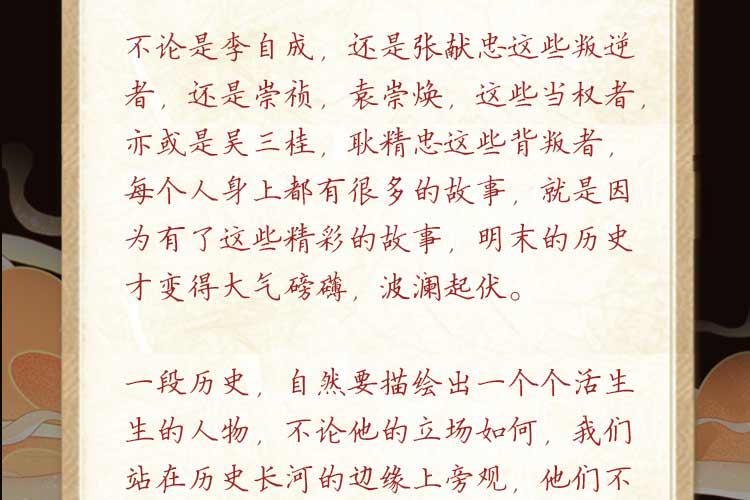 不论是李自成，还是张献忠这些叛逆
者，还是崇祯，袁崇焕，这些当权者，
亦或是吴三桂，耿精忠这些背叛者，
每个人身上都有很多的故事，就是因
为有了这些精彩的故事，明末的历史
才变得大气磅礴，波澜起伏。
一段历史，自然要描绘出一个个活生
生的人物，不论他的立场如何，我们
站在历史长河的边缘上旁观，他们不